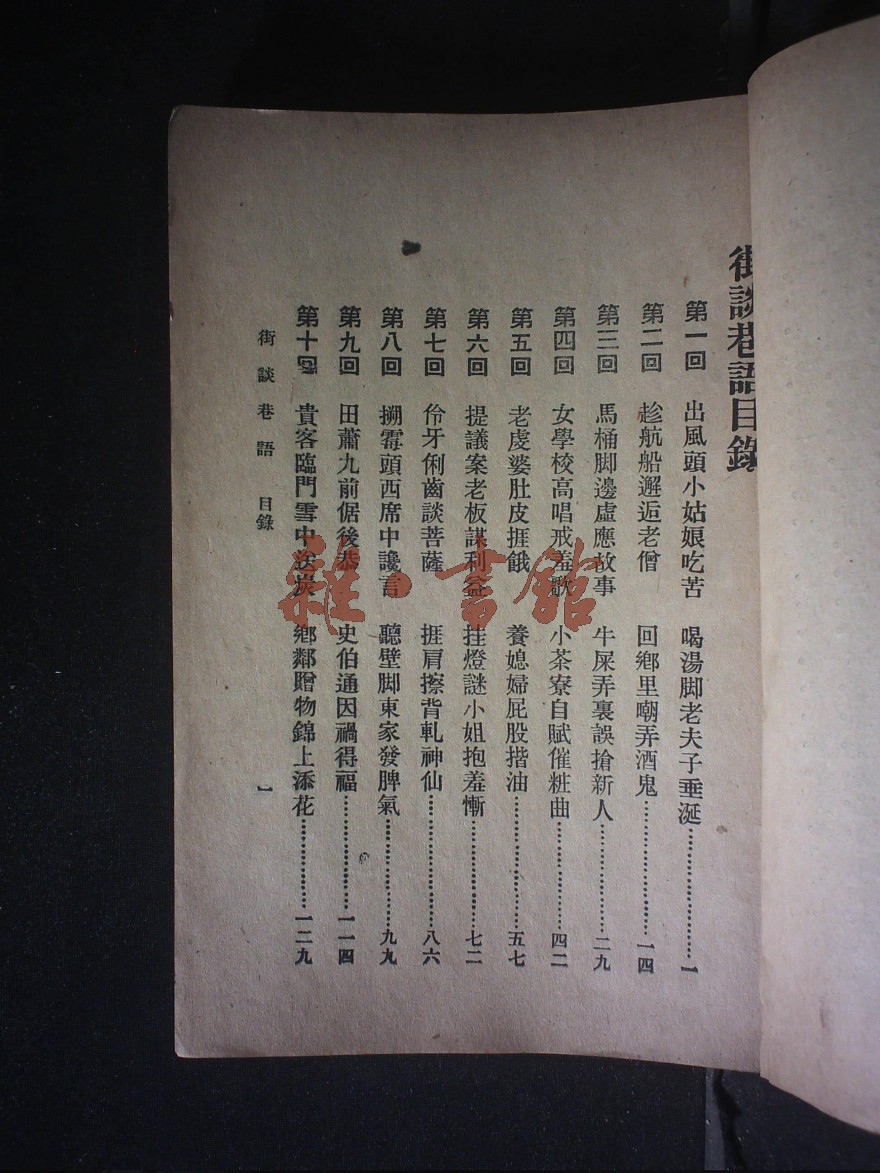 街談巷語目錄
第一回 出風頭小姑娘吃苦 喝湯脚老夫子垂涎……………………一
第二回 趁航船邂逅老僧 回鄉里嘲弄酒鬼……………………一四
第三回 馬桶脚邊虛應故事 牛屎弄裏誤搶新人……………………二九
第四回 女學校高唱戒羞歌 小茶寮自賦催粧曲……………………四二
第五回 老虔婆肚皮捱餓 養媳婦屁股揩油……………………五七
第六回 提議案老板謀利益 挂燈謎小姐抱羞慚……………………七二
第七回 伶牙俐齒談菩薩 捱肩擦背軋神仙……………………八六
第八回 搠霉頭西席中讒言 聽壁脚東家發脾氣……………………九九
第九回 田蕭九前倨後恭 史伯通因禍得福……………………一一四
第十回 貴客臨門雪中送炭 鄉鄰贈物錦上添花……………………一二九
街談巷語 目錄 一
雜·書館